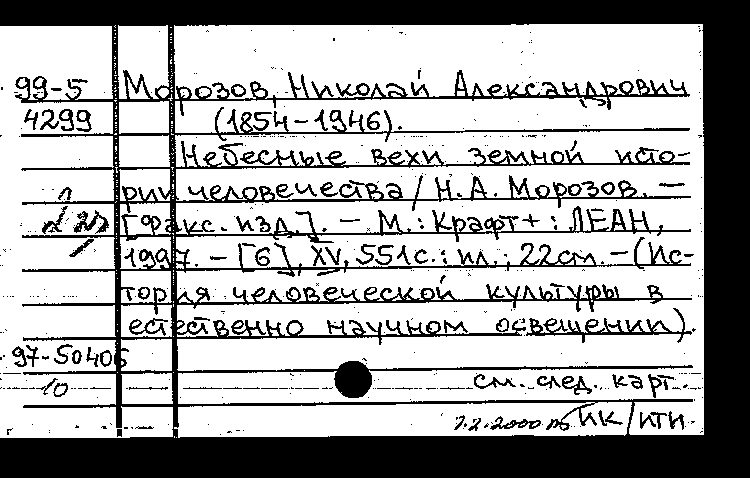 99-5 Морозов, Николай Александрович
4299 (1854-1946).
Небесные вехи земной исто-
рии человечества / Н. А. Морозов. —
[Факс. изд.]. — М.: Крафт+ : ЛЕАН,
1997. — [6], XV, 551с.: ил.; 22см. — (Ис-
тория человеческой культуры в
естественно научном освещении).
97-50406
10 см. след. карт.
2.2.2000 ИК/ИТИ